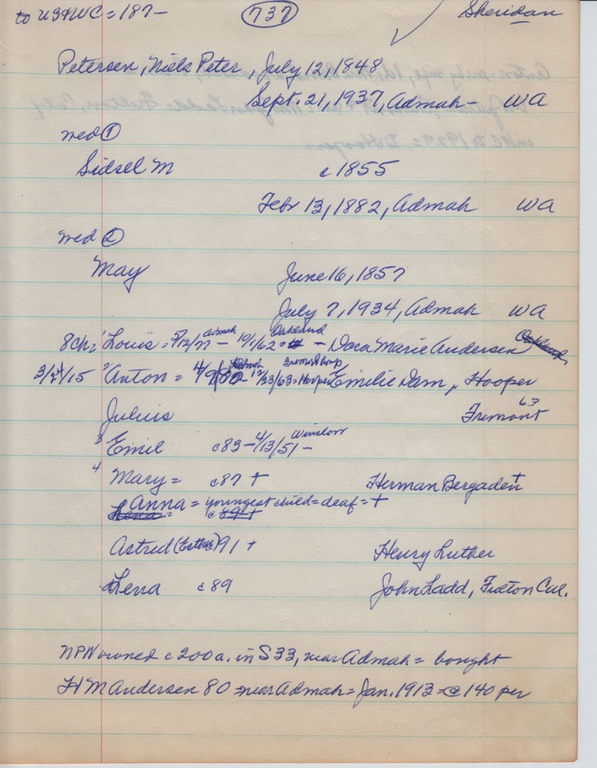 to US+WC = 187-
737
Sheridan
Petersen, Niels Peter, July 12, 1848
Sept. 21, 1937, Admah - WA
wed ①
Sidsel M c1855
Febr 13, 1882, Admah WA
wed ②
May June 16, 1857
July 7, 1934, Admah WA
8Ch: ' Louis = 5/12/77 Admah - 10/1/62 = Oakland - Dora Marie Andersen Oakland
3/24/15 Anton = Admah 12/23/63 = Hooper Emilie Dam, Hooper
Julius Fremont 63
3 Emil c83 - 4/13/51 - Winslow
4 Mary = c87 + Herman Bergadent
Anna = youngest child = deaf = +
c89+
Astrid (Esther) 91 + Henry Luther
Lena c89 John Ladd, Fulton Cal.
NPN owned c200a. in S33, near Admah = bought
HM Andersen 80 = near Admah = Jan. 1913 = @ 140 per